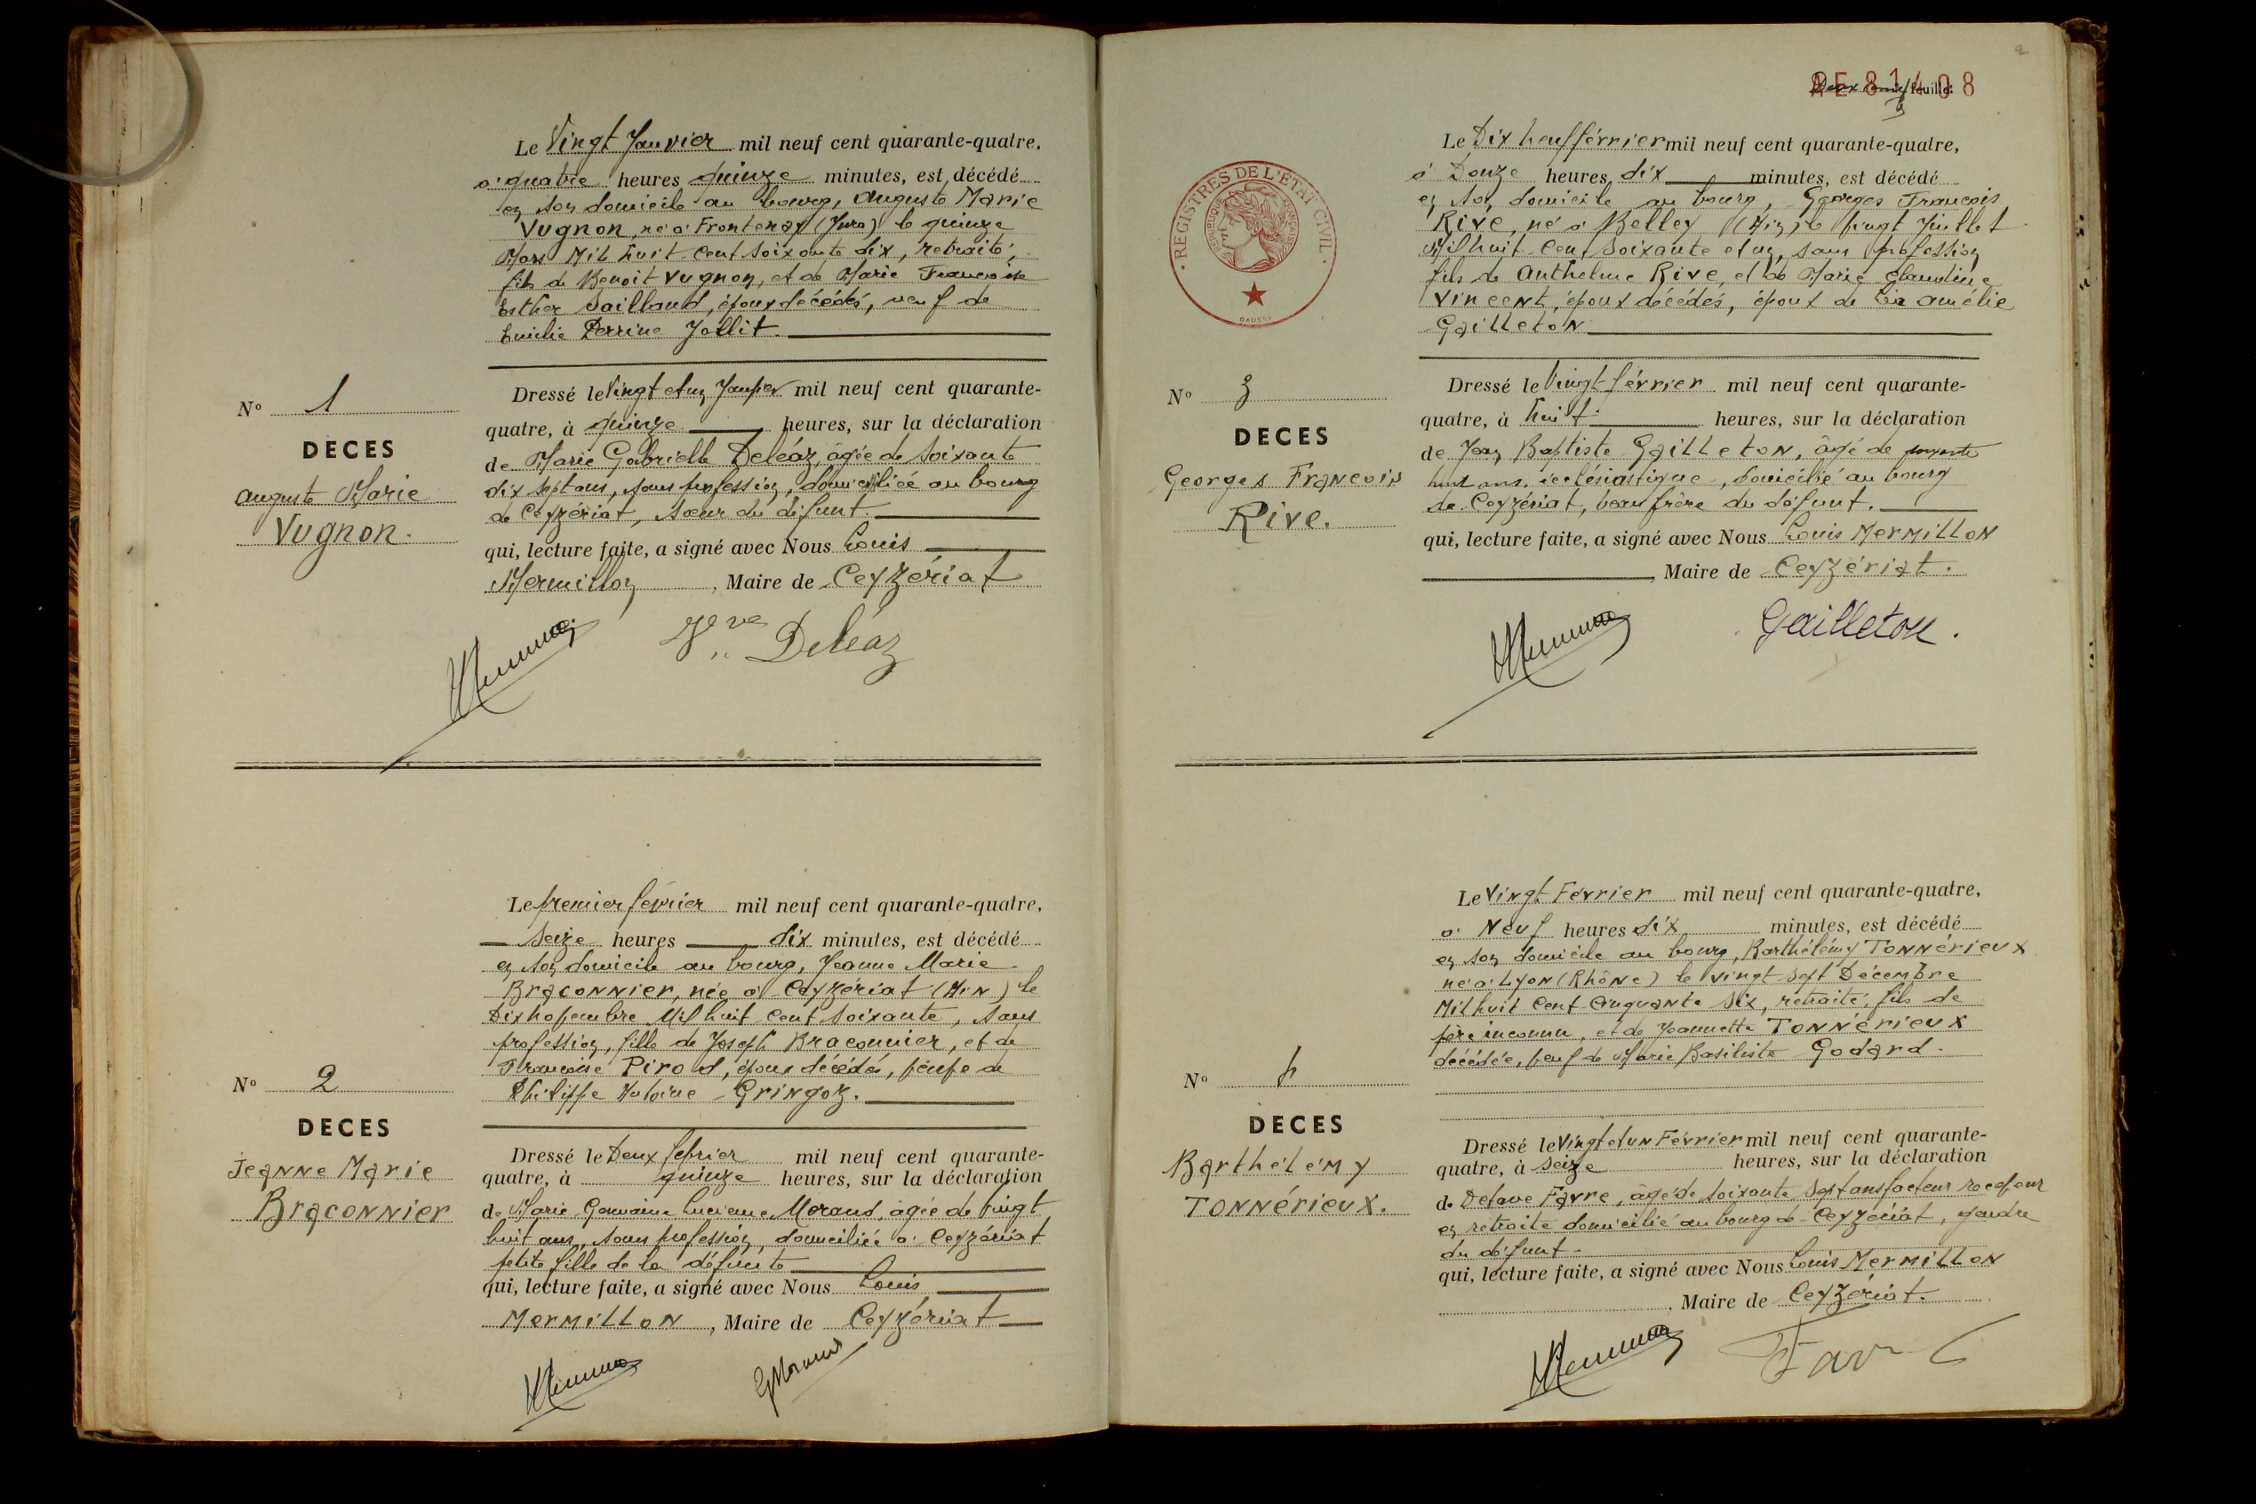 Le Vingt Janvier mil neuf cent quarante-quatre,
à quatre heures quinze minutes, est décédé
en son domicile au bourg, Auguste Marie
Vugnon, né à Frontenay (Jura) le quinze
Mars Mil huit cent soixante dix, retraité,
fils de Benoit Vugnon, et de Marie Françoise
Esther Saillard, époux décédés, veuf de
Emilie Perrine Jollit.
Dressé le Vingt et un Janvier mil neuf cent quarante-
quatre, à quinze heures, sur la déclaration
de Marie Gabrielle Deléaz, âgée de soixante
dix sept ans, sans profession, domiciliée au bourg
de Ceyzériat, sœur du défunt.
qui, lecture faite, a signé avec Nous Louis
Mermillon, Maire de Ceyzériat
Vve Deléaz
N° 1
DECES
Auguste Marie
Vugnon.
Le premier février mil neuf cent quarante-quatre,
seize heures dix minutes, est décédé
en son domicile au bourg, Jeanne Marie
Braconnier, née à Ceyzériat (Ain) le
Dix Novembre Mil huit cent soixante, sans
profession, fille de Joseph Braconnier, et de
Françoise Pirod, époux décédés, veuve de
Philippe Antoine Gringoz.
Dressé le Deux février mil neuf cent quarante-
quatre, à quinze heures, sur la déclaration
de Marie Germaine Lucienne Morand, âgée de vingt
huit ans, sans profession, domiciliée à Ceyzériat
petite fille de la défunte
qui, lecture faite, a signé avec Nous Louis
Mermillon, Maire de Ceyzériat
GMorand
N° 2
DECES
Jeanne Marie
Braconnier
2
RE 81408
feuille
REGISTRES DE L'ETAT CIVIL
Le Dix neuf février mil neuf cent quarante-quatre,
à Douze heures dix minutes, est décédé
en son domicile au bourg, Georges François
Rive, né à Belley (Ain) le vingt Juillet
Mil huit cent soixante et un, sans profession
fils de Anthelme Rive, et de Marie Claudine
Vincent, époux décédés, époux de Amélie
Gailleton
Dressé le Vingt février mil neuf cent quarante-
quatre, à huit heures, sur la déclaration
de Jean Baptiste Gailleton, âgé de soixante
huit ans, ecclésiastique, domicilié au bourg
de Ceyzériat, beau frère du défunt.
qui, lecture faite, a signé avec Nous Louis Mermillon
Maire de Ceyzériat.
Gailleton.
N° 3
DECES
Georges François
Rive.
Le Vingt Février mil neuf cent quarante-quatre,
à Neuf heures dix minutes, est décédé
en son domicile au bourg, Barthélémy Tonnérieux
né à Lyon (Rhône) le vingt sept Décembre
Mil huit cent cinquante six, retraité, fils de
père inconnu, et de Jeannette Tonnérieux
décédée, veuf de Marie Basiliste Godard.
Dressé le Vingt et un Février mil neuf cent quarante-
quatre, à seize heures, sur la déclaration
de Octave Favre, âgé de soixante sept ans facteur receveur
en retraite domicilié au bourg de Ceyzériat, gendre
du défunt
qui, lecture faite, a signé avec Nous Louis Mermillon
, Maire de Ceyzériat.
Favre
N° 4
DECES
Barthélémy
Tonnérieux.